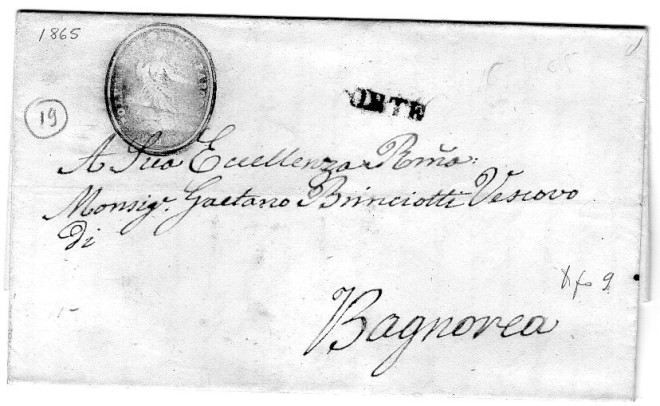 1865
19
ORTE
A Sua Eccellenza Rm̃a:
Monsigr. Gaetano Brinciotti Vescovo
di
Bagnorea